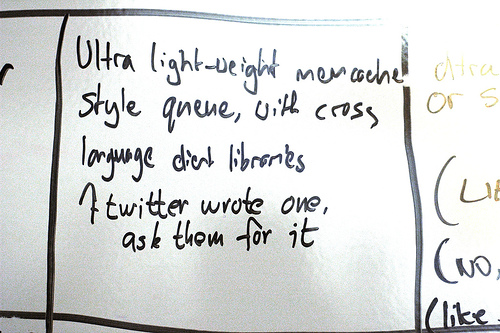 Ultra light-weight memcache
style queue, with cross
language client libraries
↑ twitter wrote one,
ask them for it
or s
(LI
(NO,
(like